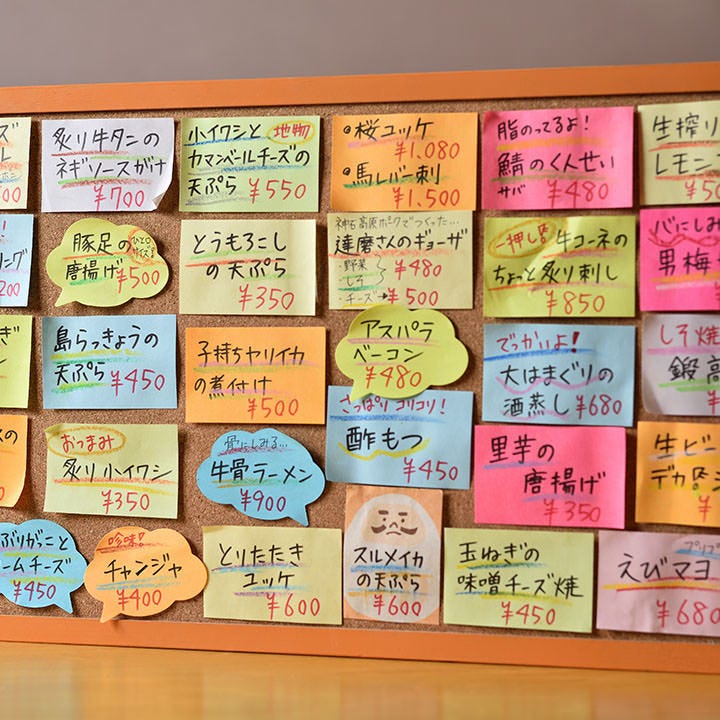 炙り牛タンの
ネギソースがけ
¥700
小イワシと 地物
カマンベールチーズの
天ぷら ¥550
桜ユッケ
¥1,080
馬レバー刺
¥1,500
脂のってるよ!
鯖のくんせい
サバ ¥480
生搾り
レモン
豚足の
唐揚げ ¥500
ひと口
サイズ!
とうもろこし
の天ぷら
¥350
神石高原ポークでつくった…
達磨さんのギョーザ
・野菜
・しそ ¥480
・チーズ→¥500
一押し! 牛コーネの
ちょっと炙り刺し
¥850
心にしみ
男梅
島らっきょうの
天ぷら ¥450
子持ちヤリイカ
の煮付け
¥500
アスパラ
ベーコン
¥480
でっかいよ!
大はまぐりの
酒蒸し ¥680
しそ焼
鍛高
おつまみ
炙り小イワシ
¥350
骨にしみる…
牛骨ラーメン
¥900
さっぱりコリコリ!
酢もつ
¥450
里芋の
唐揚げ
¥350
生ビー
デカ
ぶりがっこと
ームチーズ
¥450
珍味!
チャンジャ
¥400
とりたたき
ユッケ
¥600
スルメイカ
の天ぷら
¥600
玉ねぎの
味噌チーズ焼
¥450
プリプ
えびマヨ
¥680